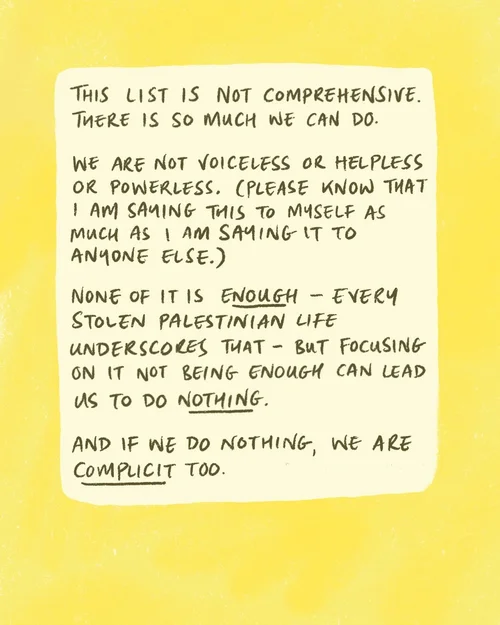 THIS LIST IS NOT COMPREHENSIVE.
THERE IS SO MUCH WE CAN DO.
WE ARE NOT VOICELESS OR HELPLESS
OR POWERLESS. (PLEASE KNOW THAT
I AM SAYING THIS TO MYSELF AS
MUCH AS I AM SAYING IT TO
ANYONE ELSE.)
NONE OF IT IS ENOUGH – EVERY
STOLEN PALESTINIAN LIFE
UNDERSCORES THAT – BUT FOCUSING
ON IT NOT BEING ENOUGH CAN LEAD
US TO DO NOTHING.
AND IF WE DO NOTHING, WE ARE
COMPLICIT TOO.